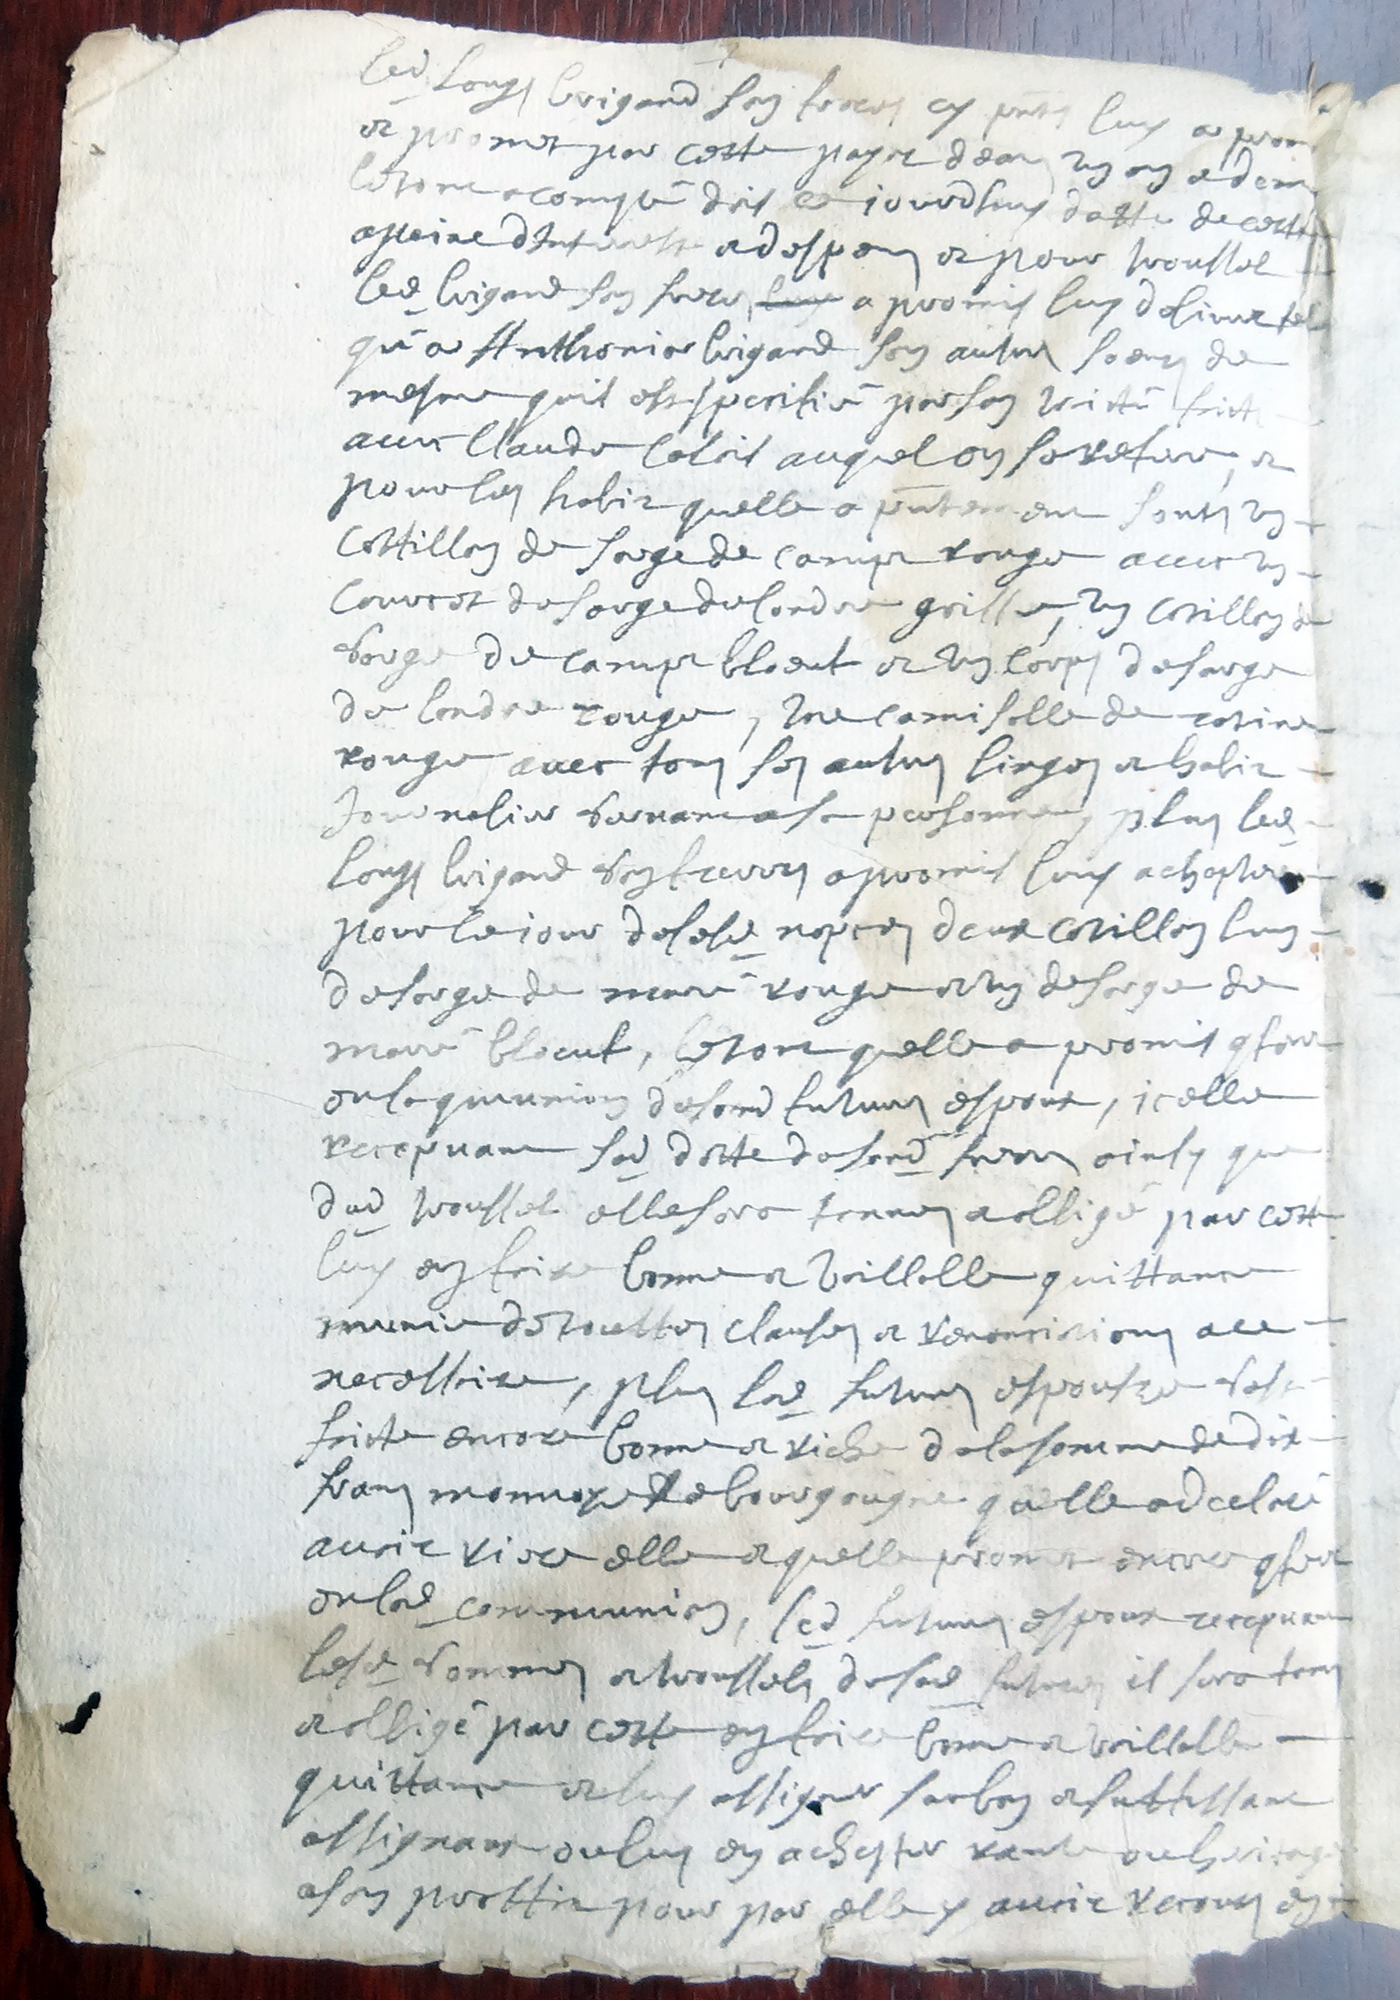 led Longy brigand son frere cy pnt luy a prom
et promet par cette payer dean un an a dem
lesTant a compté dois ce jourdhuy datte de cette
a peine dInterest et despens et pour troussel
led brigand son frere a promis luy delivrer tel
qu'a Anthonia brigand son autre soeur de
mesme quil est specifié par son traité faict
avec Claude Colois auquel on se refere, et
pour les habiz quelle a pntement sont un
Cottillon de sarge de camp rouge avec un
Courcet de sarge de londre grisse, un Cotillon de
sarge de camp bleut et un corps de sarge
de londre rouge, une camisolle de ratine
rouge avec tous ses autres linges et habiz
Journelier servant a sa personne, plus led
Longy brigand son frere a promis luy achepter
pour le jour de sesd nopces deux cotillon l'un
de sarge de mare rouge et un de sarge de
mare bleut, lestant quelle a promis qferer
en la qmunion de sond futur espoux, icelle
recepvant sad dotte de sond frere ainsy que
dud troussel elle sera tenue et obligé par cette
luy en faire bonne et vaillable quittance
munie de touttes clauses et renonciations a ce
necessaire, plus lad future espouse sest
faicte encore bonne et riche de la somme de dix
frans monnoye de bourgougne quelle a declaré
avoir riere elle et quelle promet encore qferer
en lad communion, led futur espoux recepvant
lesd sommes et troussels de sad future il sera tenu
et obligé par cette en faire bonne et vaillable
quittance et luy assigner sur bon et suffissant
assignaux ou luy en achepter rante ou heritage
a son proffit pour par elle y avoir recours en